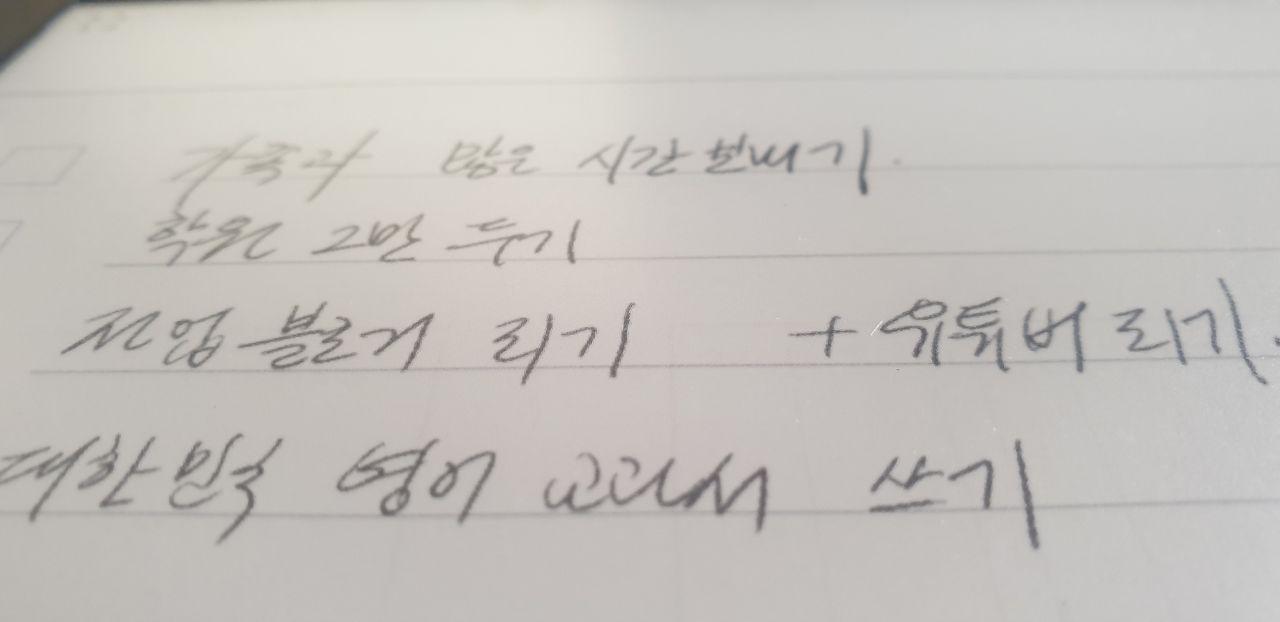 가족과 많은 시간 보내기.
학원 그만 두기
전업 블로거 되기 + 유튜버 되기.
대한민국 영어 교과서 쓰기